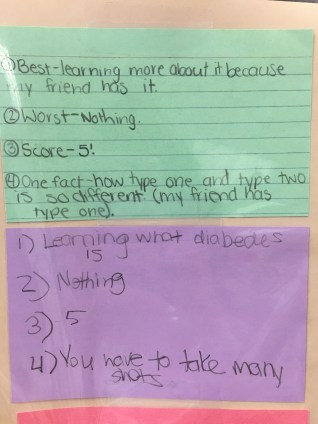 ① Best-learning more about it because
my friend has it.
② Worst-Nothing.
③ Score-5!
④ One fact-how type one and type two
is so different. (my friend has
type one).
1) Learning what diabedes
is
2) Nothing
3) 5
4) You have to take many
shots